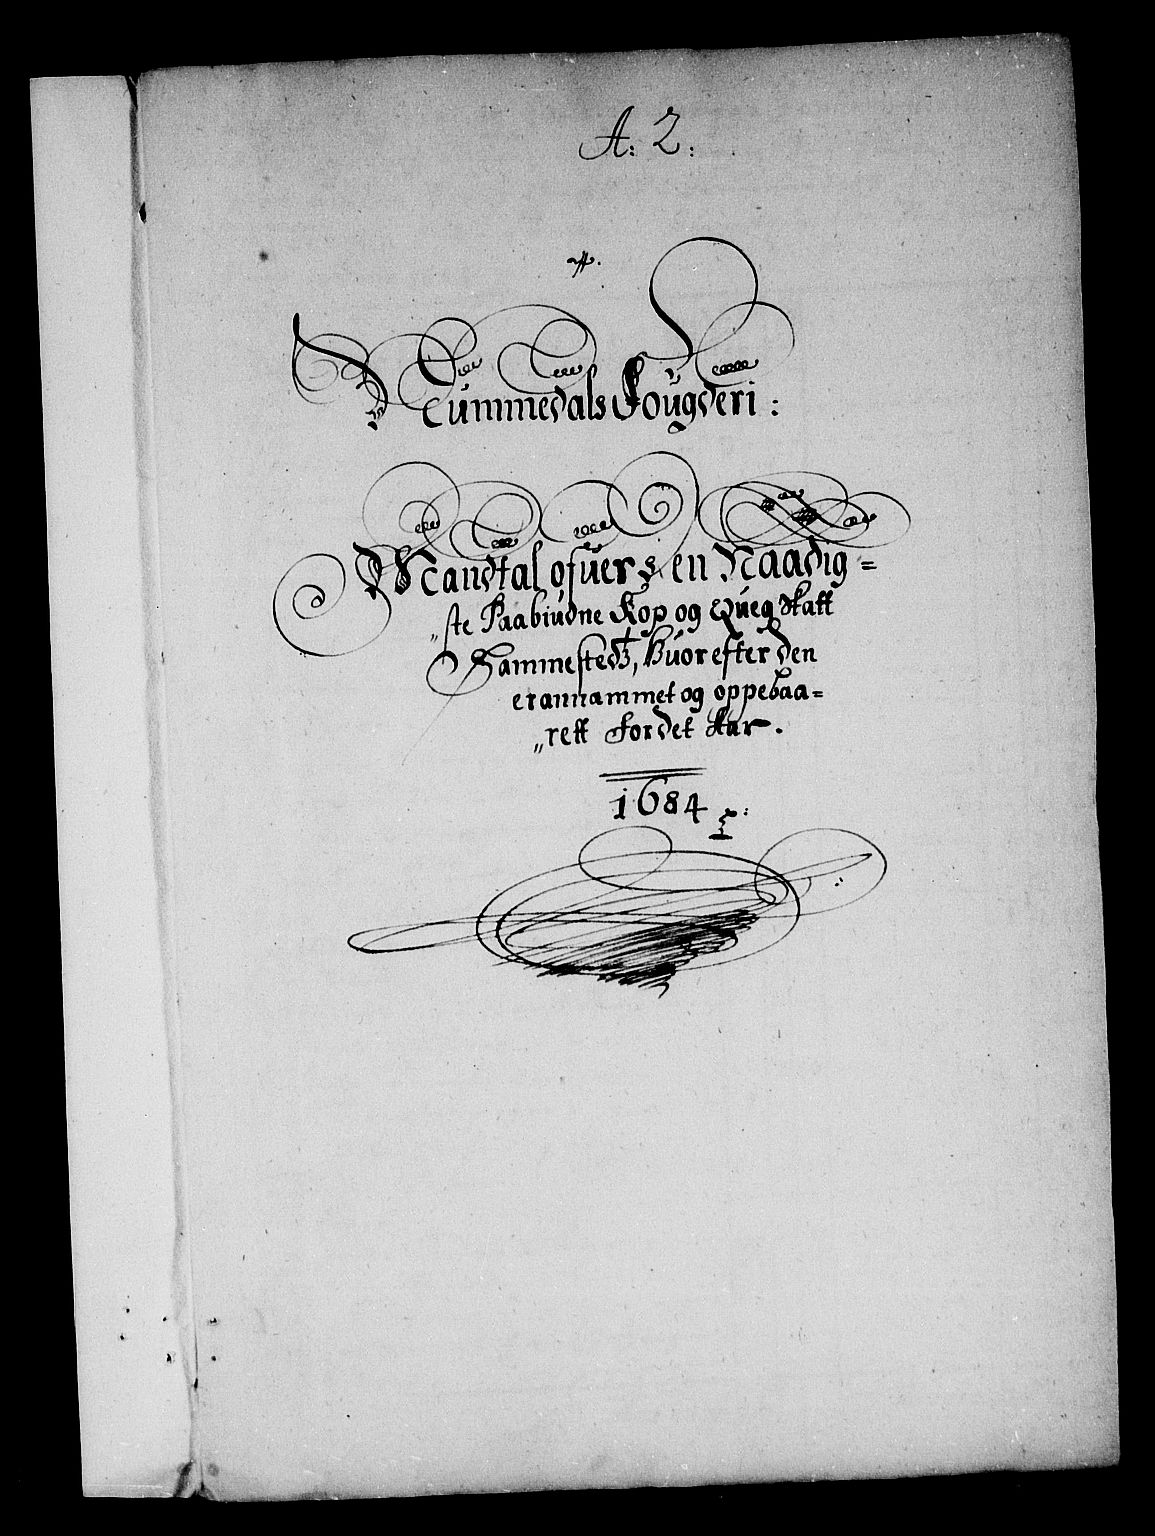 A: 2:
Nummedals Fougderi:
Mandtal ofuer den Naadig=
„ste Paabiudne Kop og Queg Skatt
Sammesteds, Huorefter den
er annammet og oppebaa=
„rett for det Aar.
1684